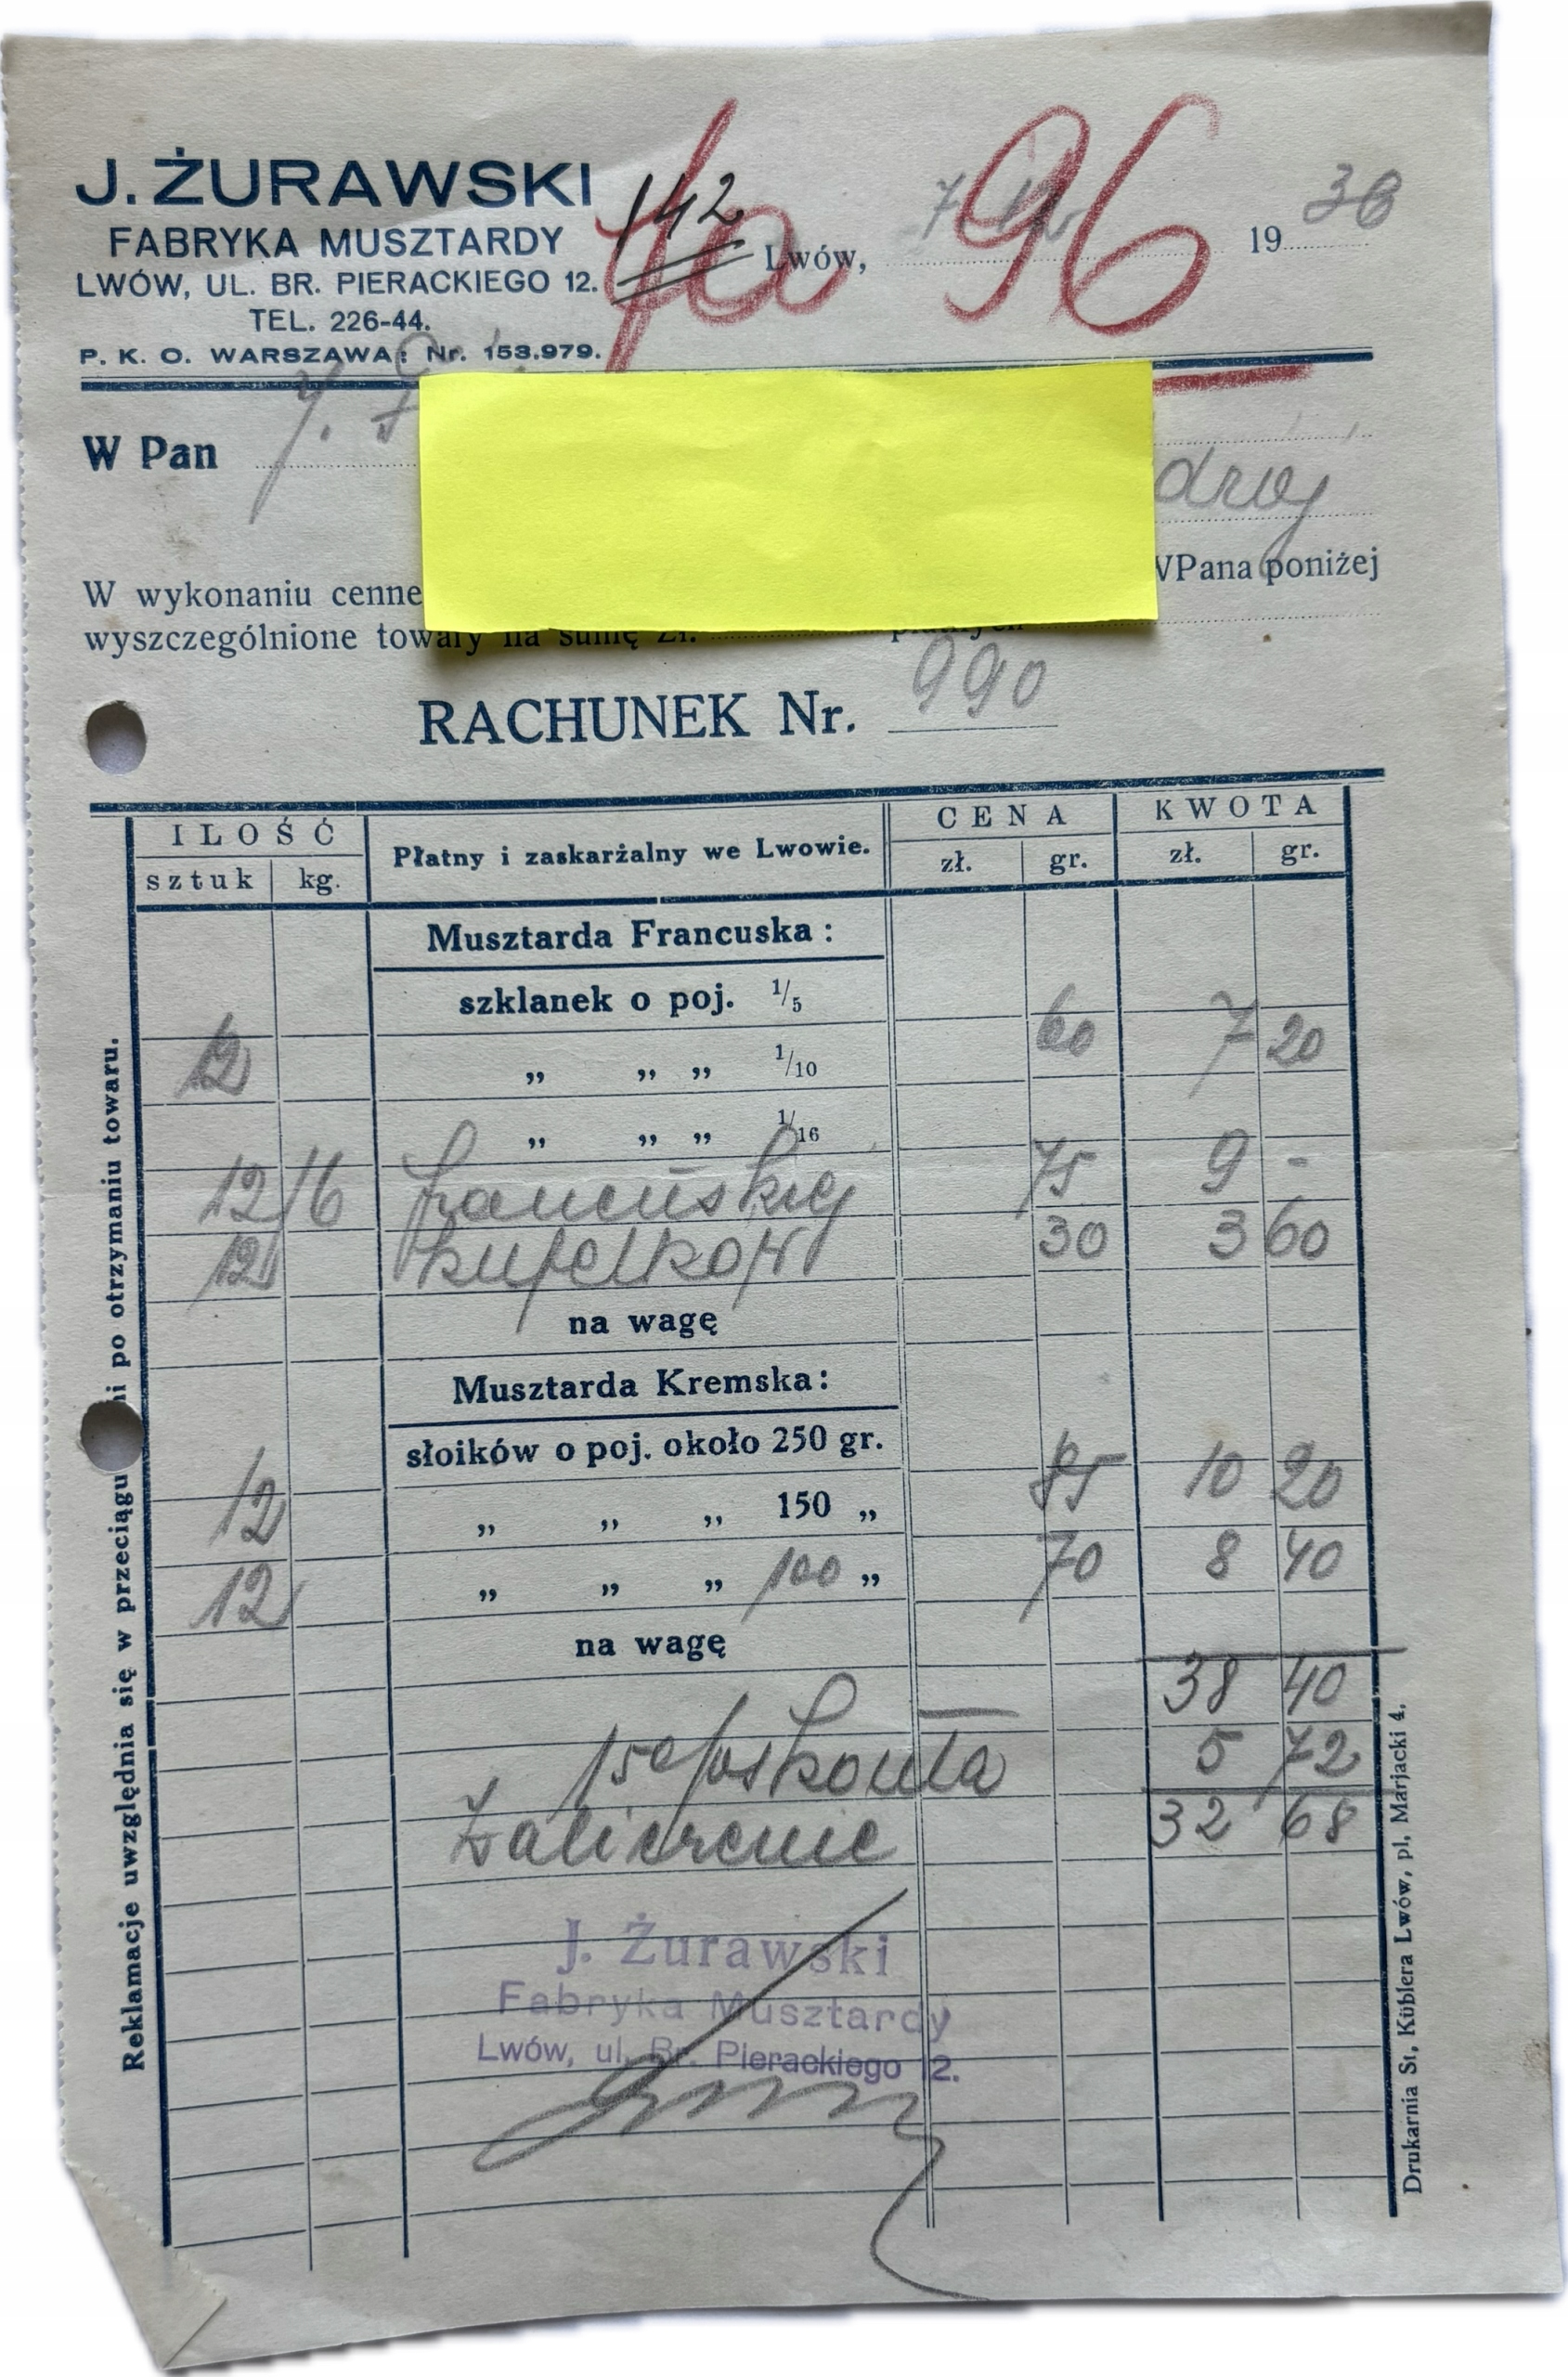 J. ŻURAWSKI
FABRYKA MUSZTARDY
LWÓW, UL. BR. PIERACKIEGO 12.
TEL. 226-44.
P. K. O. WARSZAWA: Nr. 153.979.
142
96
Lwów, 7 12 1938
W Pan J.
drój
W wykonaniu cenne WPana poniżej
wyszczególnione towary na sumę Zł. płatnych
RACHUNEK Nr. 990
ILOŚĆ Płatny i zaskarżalny we Lwowie. CENA KWOTA
sztuk kg. zł. gr. zł. gr.
Musztarda Francuska:
szklanek o poj. 1/5
12 „ „ „ 1/10 60 7 20
„ „ „ 1/16
12/6 francuskiej 75 9 -
12 kufelków 30 3 60
na wagę
Musztarda Kremska:
słoików o poj. około 250 gr.
12 „ „ „ 150 „ 85 10 20
12 „ „ „ 100 „ 70 8 40
na wagę
38 40
15% skonta 5 72
zaliczenie 32 68
J. Żurawski
Fabryka Musztardy
Lwów, ul. Br. Pierackiego 12.
Reklamacje uwzględnia się w przeciągu po otrzymaniu towaru.
Drukarnia St. Küblera Lwów, pl. Marjacki 4.